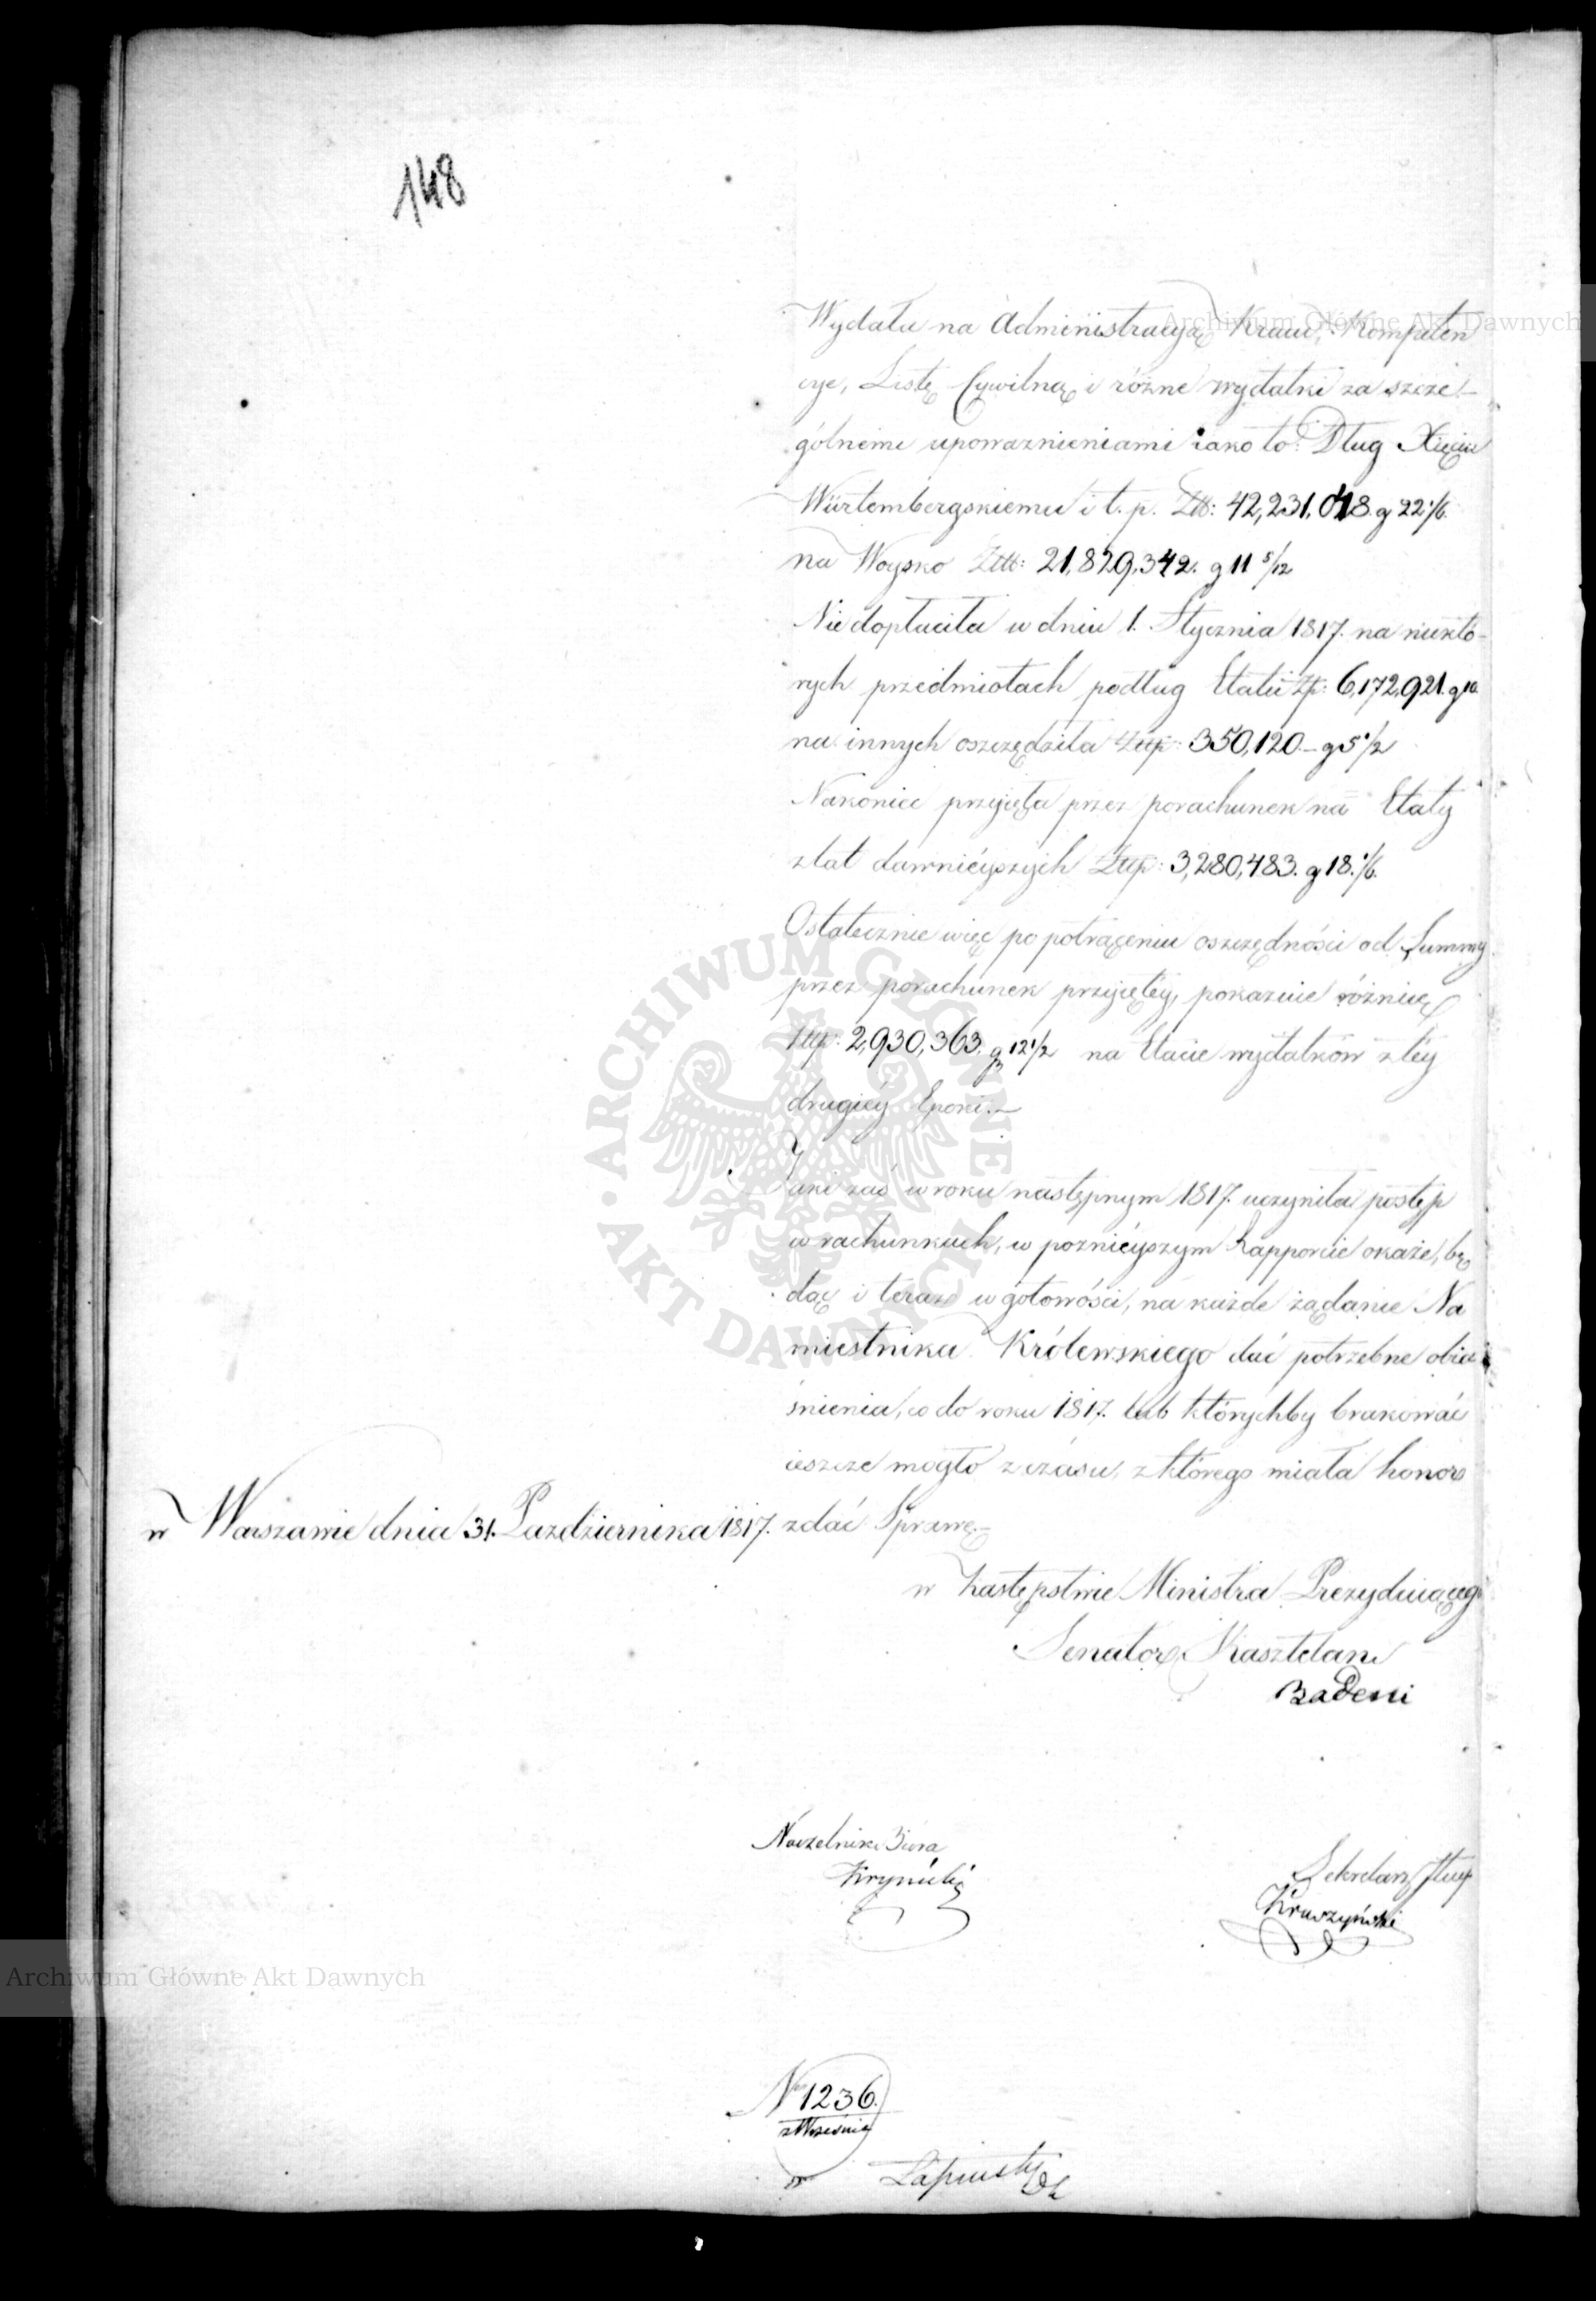 148
Wydału na Administracyą Kraiu, Kompeten
cye, Listę Cywilną i różne wydatki za szcze-
gólnemi upoważnieniami iako to: Dług Xięciu
Würtembergskiemu i t. p. Ztt: 42,231,048. g 22 1/6.
na Woysko Ztt: 21,829,342. g 11 5/12
Niedopłaciła w dniu 1. Stycznia 1817. na niektó-
rych przedmiotach podług Etatu Zp: 6,172,921. g 10.
na innych oszczędziła Złp: 350,120.- g 5 1/2
Nakoniec przyięła przez porachunek na Etaty
z lat dawniéyszych Złp: 3,280,483. g 18 1/6.
Ostatecznie więc po potrąceniu oszczędności od Summy
przez porachunek przyiętéy, pokazuie różnicę
Złp: 2,930,363. g 12 1/2 na Etacie wydatków z téy
drugiéy Epoki.-
Jaki zaś w roku następnym 1817. uczyniła postęp
w rachunkach, w pozniéyszym Rapporcie okaże, bę
dąc i teraz w gotowości, na każde żądanie Na
miestnika Królewskiego dać potrzebne obia
śnienia, co do roku 1817. lub którychby brakować
ieszcze mogło z czasu, z którego miała honor
w Warszawie dnia 31. Pazdziernika 1817. zdać Sprawę.-
w Zastępstwie Ministra Prezyduiącego
Senator Kasztelan
Badeni
Naczelnik Biora
Sekretarz Stup
Kruszyński
N 1236.
z Września
Archiwum Główne Akt Dawnych
Archiwum Główne Akt Dawnych
ARCHIWUM GŁÓWNE AKT DAWNYCH